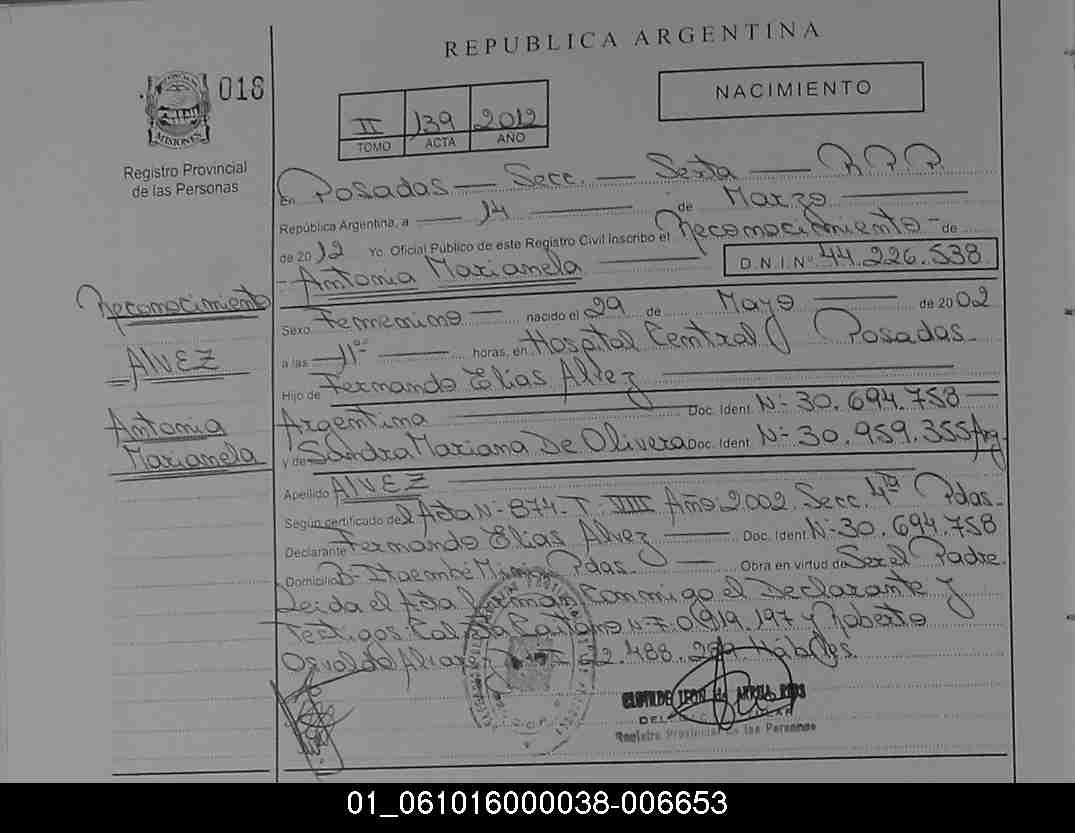 REPUBLICA ARGENTINA
018
NACIMIENTO
II 139 2012
TOMO ACTA AÑO
MISIONES
Registro Provincial
de las Personas
En Posadas — Secc. — Sexta —
República Argentina, a — 14 — de Marzo —
de 2012 Yo Oficial Público de este Registro Civil inscribo el Reconocimiento - de
Antonia Marianela — D.N.I.Nº 44.226.538
Reconocimiento
ALVEZ
Antonia
Marianela
Sexo Femenino — nacido el 29 de Mayo — de 2002
a las — 11 — horas, en Hospital Central Posadas -
Hijo de Fernando Elías Alvez —
Argentina Doc. Ident. Nº 30.694.758 —
y de Sandra Mariana De Olivera Doc. Ident. Nº 30.959.355 Arg
Apellido ALVEZ —
Según certificado del Acta Nº 874 - T: IIII Año: 2002. Secc. 4ta Pdas.
Declarante Fernando Elías Alvez — Doc. Ident. Nº 30.694.758
Domicilio Bº Itaembé Pdas. — Obra en virtud de Ser el Padre.
Leida el Acta Firman Conmigo el Declarante y
Testigos y Roberto
Osvaldo Hábiles.
CLOTILDE LEON de
Registro Provincial de las Personas
01_061016000038-006653